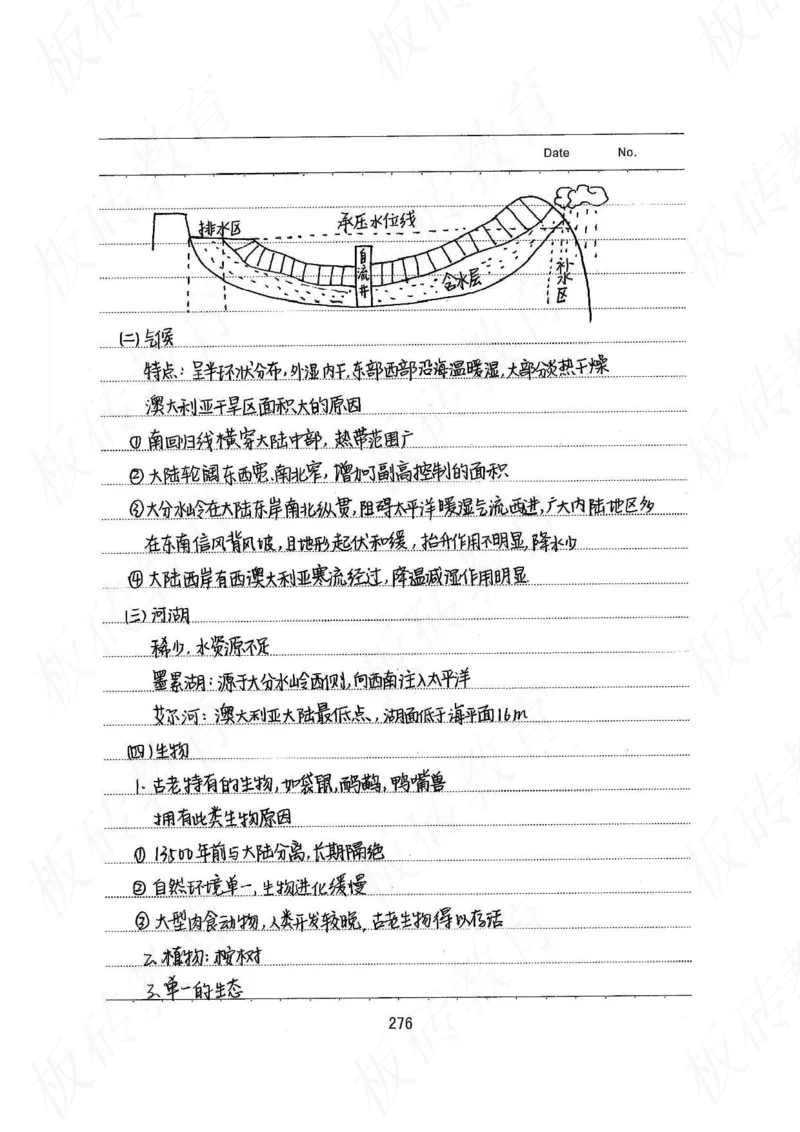 Date No.
排水区
承压水位线
自流井
含水层
补水区
(二)气候
特点:呈半环状分布,外湿内干,东部西部沿海温暖湿,大部分炎热干燥
澳大利亚干旱区面积大的原因
① 南回归线横穿大陆中部,热带范围广
② 大陆轮阔东西宽、南北窄,增加了副高控制的面积
③大分水岭在大陆东岸南北纵贯,阻碍太平洋暖湿气流西进,广大内陆地区多
在东南信风背风坡,且地形起伏和缓,抬升作用不明显,降水少
④ 大陆西岸有西澳大利亚寒流经过,降温减湿作用明显
(三)河湖
稀少,水资源不足
墨累湖:源于大分水岭西侧,向西南注入太平洋
艾尔河:澳大利亚大陆最低点,湖面低于海平面16m
(四)生物
1.古老特有的生物,如袋鼠,鸸鹋,鸭嘴兽
拥有此类生物原因
① 13500年前与大陆分离,长期隔绝
② 自然环境单一,生物进化缓慢
③ 大型肉食动物,人类开发较晚,古老生物得以存活
2.植物:桉树
3.单一的生态
276
板砖教育